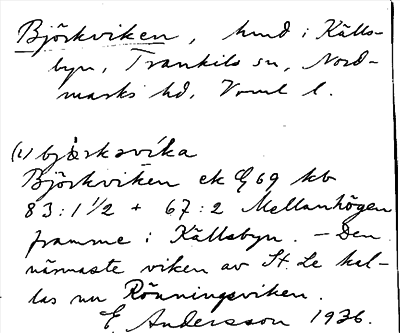 Björkviken, hmd i Källs-
byn, Trankils sn, Nord-
marks hd, Vrml l.
(1) bjærkəvíka
Björkviken ek 969 kb
83:1 1/2 + 67:2 Mellanhögen
framme i Källsbyn. – Den
närmaste viken av St. Le kal-
las nu Rönningsviken.
E. Andersson 1936.